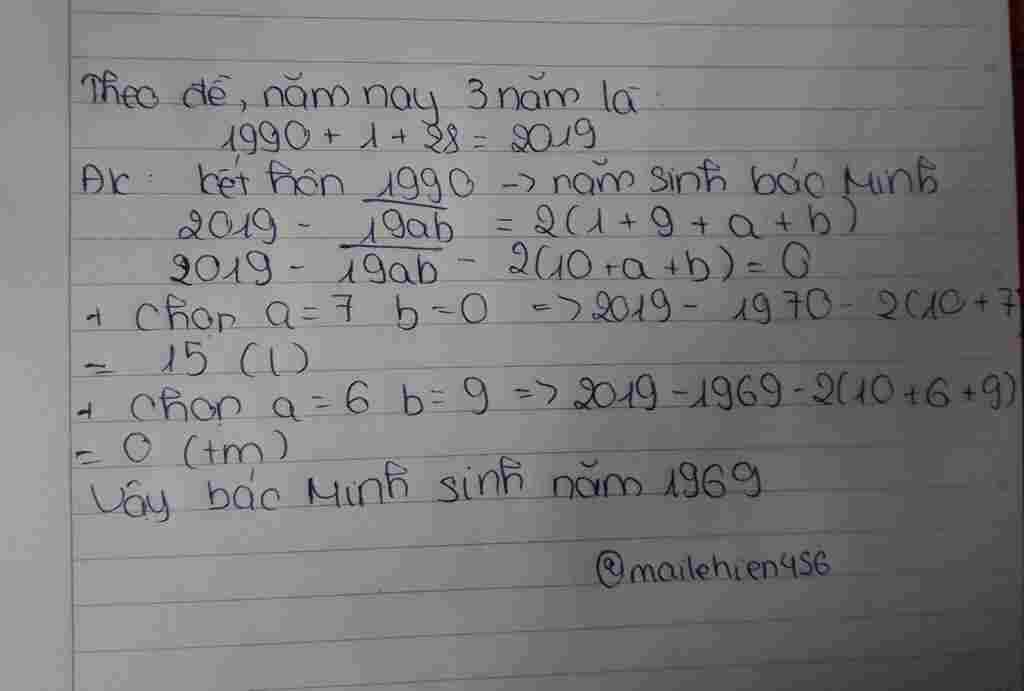 Theo đề, năm nay 3 năm là:
1990 + 1 + 28 = 2019
ĐK: kết hôn 1990 -> năm sinh bác Minh
2019 - 19ab = 2(1 + 9 + a + b)
2019 - 19ab - 2(10 + a + b) = 0
+ Chọn a = 7 b = 0 => 2019 - 1970 - 2(10 + 7
= 15 (l)
+ Chọn a = 6 b = 9 => 2019 - 1969 - 2(10 + 6 + 9)
= 0 (tm)
Vậy bác Minh sinh năm 1969
@mailehien456